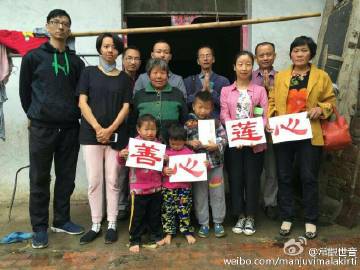 善心莲心
weibo.com/manjuvimalakirti